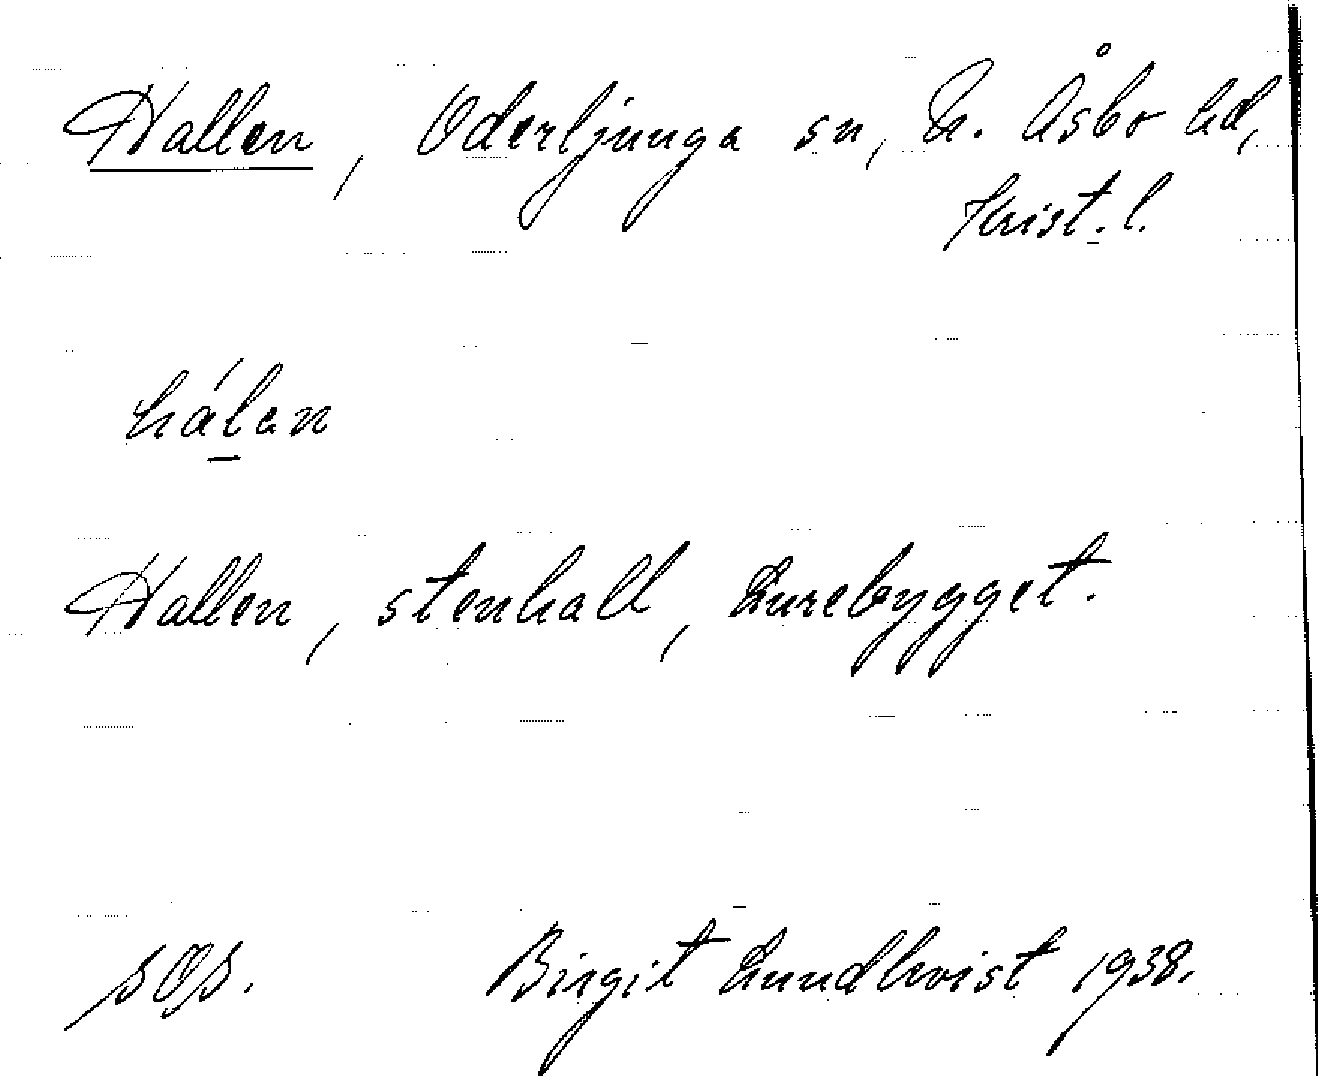 Hallen, Oderljunga sn, N. Åsbo hd,
Krist. l.
hálen
Hallen, stenhall, Lurebygget.
SOS. Birgit Lundkvist 1938.